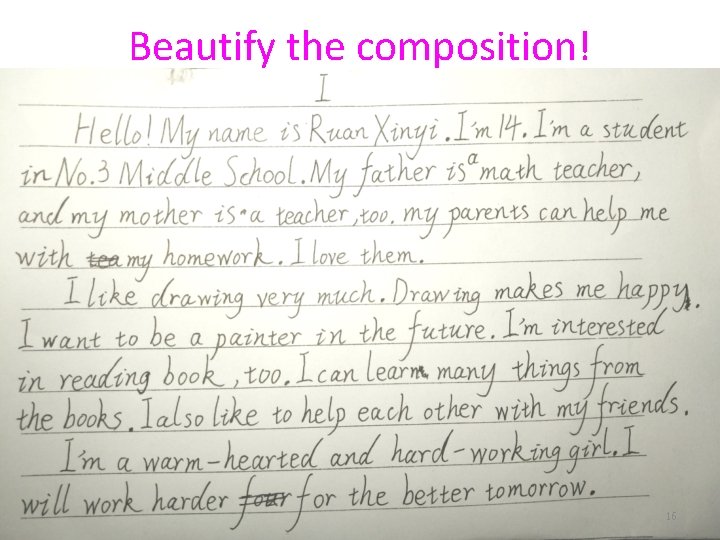 Beautify the composition!
I
Hello! My name is Ruan Xinyi. I'm 14. I'm a student
in No.3 Middle School. My father is a math teacher,
and my mother is a teacher, too. my parents can help me
with tea my homework. I love them.
I like drawing very much. Drawing makes me happy.
I want to be a painter in the future. I'm interested
in reading book, too. I can learn many things from
the books. I also like to help each other with my friends.
I'm a warm-hearted and hard-working girl. I
will work harder four for the better tomorrow.
16